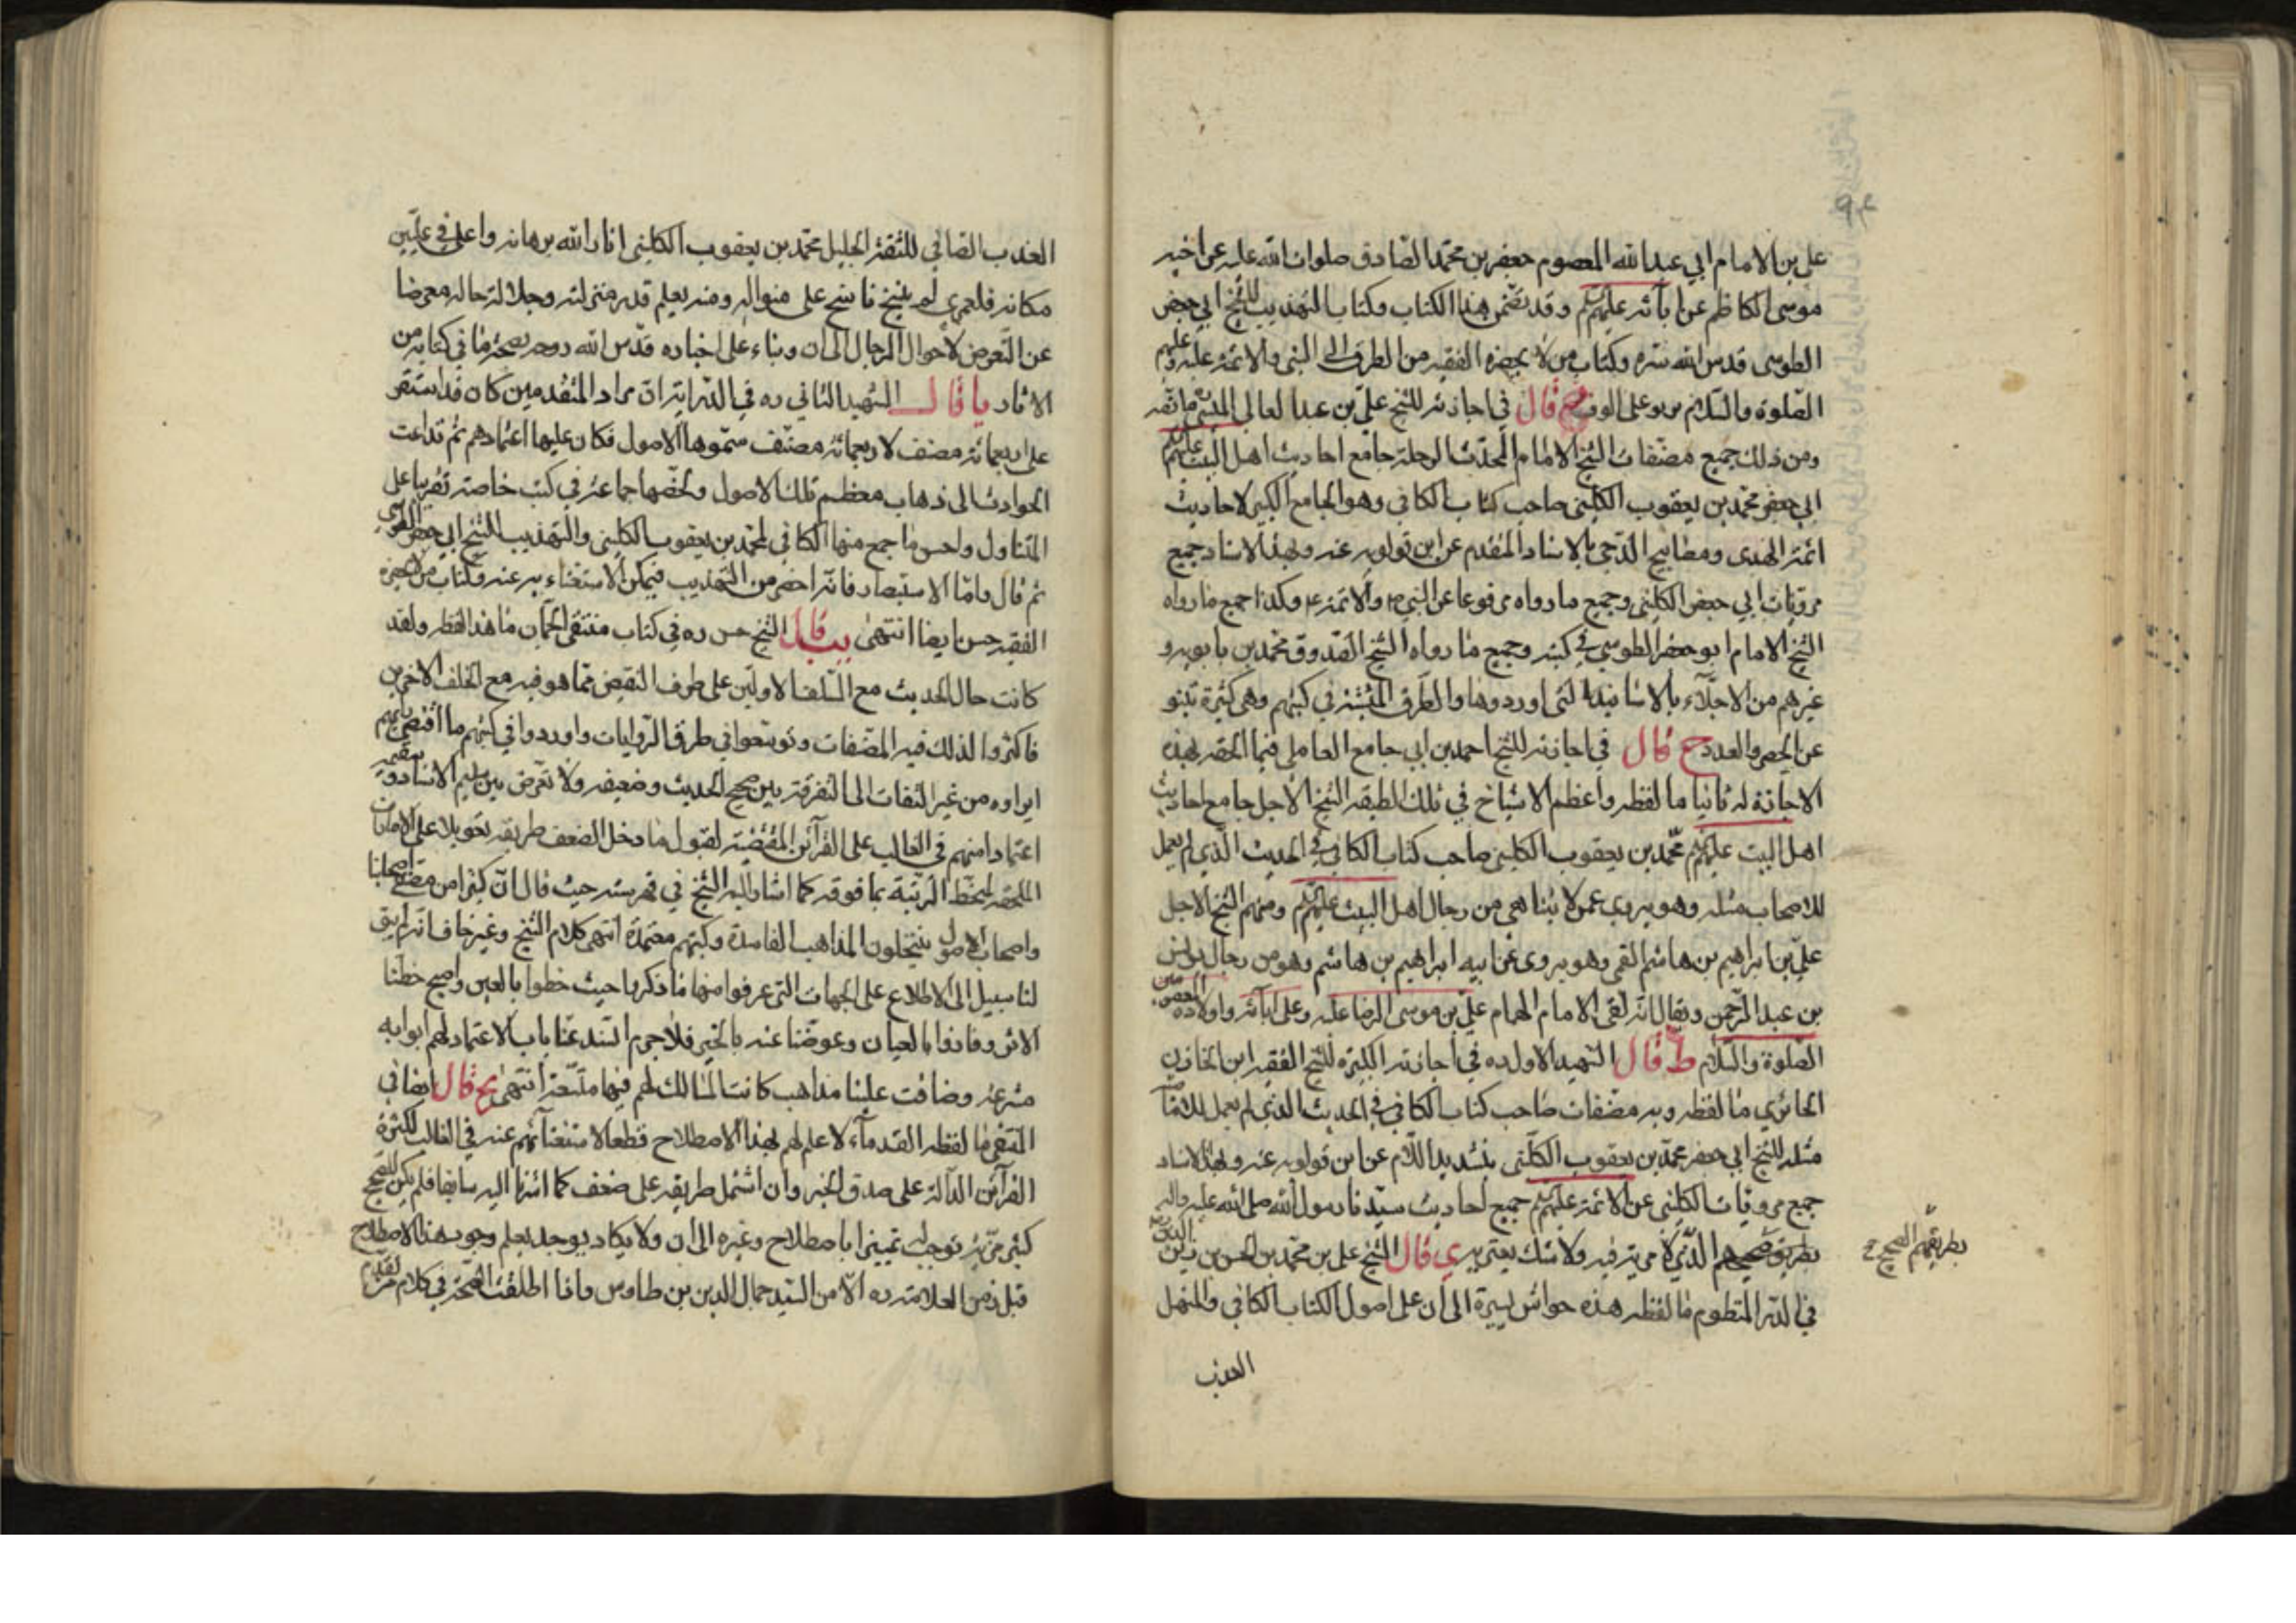 علي بن الامام ابي عبد الله المعصوم جعفر بن محمد الصادق صلوات الله عليه عن اخيه
موسى الكاظم عن ابائه عليهم السلم وقد تضمن هذا الكتاب وكتاب التهذيب للشيخ ابي جعفر
الطوسي قدس الله سره وكتاب من لا يحضره الفقيه من الطرق الى النبي والائمة عليه وعليهم
الصلوة والسلام ما يربو على الوف قال في اجازته للشيخ علي بن عبد العالى الميسي ما لفظه
ومن ذلك جميع مصنفات الشيخ الامام المحدث الرحلة جامع احاديث اهل البيت عليهم السلم
ابي جعفر محمد بن يعقوب الكليني صاحب كتاب الكافي وهو الجامع الكبير لاحاديث
ائمة الهدى ومصابيح الدجى بالاسناد المتقدم عن ابن قولويه عنه وبهذا الاسناد جميع
مرويات ابي جعفر الكليني وجميع ما رواه مرفوعا عن النبي ص والائمة ع وكذا جميع ما رواه
الشيخ الامام ابو جعفر الطوسي في كتبه وجميع ما رواه الشيخ الصدوق محمد بن بابويه و
غيرهم من الاجلاء بالاسانيد التي اوردوها والطرق المثبتة في كتبهم وهي كثيرة تنبو
عن الحصر والعدد ح قال في اجازته للشيخ احمد بن ابي جامع العاملي فيما الحقه بهذه
الاجازة له ثانيا ما لفظه واعظم الاشياخ في تلك الطبقه الشيخ الاجل جامع احاديث
اهل البيت عليهم السلم محمد بن يعقوب الكليني صاحب كتاب الكافي في الحديث الذي لم يعمل
للاصحاب مثله وهو يروي عمن لا يتناهى من رجال اهل البيت عليهم السلم ومنهم الشيخ الاجل
علي بن ابراهيم بن هاشم القمي وهو يروى عن ابيه ابراهيم بن هاشم وهو من رجال يونس
بن عبد الرحمن ويقال انه لقى الامام الهمام علي بن موسى الرضا عليه وعلى ابائه واولاده المعصومين
الصلوة والسلام ط قال الشهيد الاول ره في اجازته الكبيرة للشيخ الفقيه ابن الخازن
الحائري ما لفظه وبه مصنفات صاحب كتاب الكافي في الحديث الذي لم يعمل للاماميه
مثله للشيخ ابي جعفر محمد بن يعقوب الكليني بتشديد اللام عن ابن قولويه عنه وبهذا الاسناد
جميع مرويات الكليني عن الائمة عليهم السلم جميع احاديث سيدنا رسول الله صلى الله عليه واله
بطريق صحيحهم الذي لا مرية فيه ولا شك يعتريه ي قال الشيخ علي بن محمد بن الحسن بن زين الدين ره
بطريقهم الصحيح
في الدر المنظوم ما لفظه هذه حواش يسيرة الى ان على اصول الكتاب الكافي والمنهل
العذب
العذب الصافي للثقة الجليل محمد بن يعقوب الكليني انار الله برهانه واعلى في عليين
مكانه فلعمري لم ينسج ناسج على منواله ومنه يعلم قدر منزلته وجلالة حاله معرضا
عن التعرض لاحوال الرجال الى ان وبناء على اخباره قدس الله روحه بصحة ما في كتابه من
الاثار يا قال الشهيد الثاني ره في الدراية ان مراد المتقدمين كان قد استقر
على اربعمائة مصنف لاربعمائة مصنف سموها الاصول فكان عليها اعتمادهم ثم تداعت
الحوادث الى ذهاب معظم تلك الاصول ولخصها جماعة في كتب خاصة تقريبا على
المتناول واحسن ما جمع منها الكافي لمحمد بن يعقوب الكليني والتهذيب للشيخ ابي جعفر الطوسي
ثم قال واما الاستبصار فانه اخص من التهذيب فيمكن الاستغناء به عنه وكتاب من لا يحضره
الفقيه حسن ايضا انتهى يب قال الشيخ حسن ره في كتاب منتقى الجمان ما هذا لفظه ولقد
كانت حال الحديث مع السلف الاولين على طرف النقيض مما هو فيه مع الخلف الاخرين
فاكثروا لذلك فيه المصنفات وتوسعوا في طرق الروايات واوردوا في كتبهم ما اقتضى رايهم
ايراده من غير التفات الى التفرقة بين صحيح الحديث وضعيفه ولا تعرض بين سليم الاسناد وسقيمه
اعتمادا منهم في الغالب على القرائن المقتضية لقبول ما دخل الضعف طريقه تعويلا على الامارات
الملحقه لمنحط الرتبة بما فوقه كما اشار اليه الشيخ في فهرسته حيث قال ان كثيرا من مصنفي اصحابنا
واصحاب الاصول ينتحلون المذاهب الفاسدة وكتبهم معتمدة انتهى كلام الشيخ وغير خاف انه لم يبق
لنا سبيل الى الاطلاع على الجهات التي عرفوا منها ما ذكرنا حيث حظوا بالعين واصبح حظنا
الاثر وفازوا بالعيان وعوضنا عنه بالخبر فلا جرم انسد عنا باب الاعتماد لهم ابوابه
مشرعة وضاقت علينا مذاهب كانت المسالك لهم فيها متسعة انتهى يج قال ايضا في
المنتقى ما لفظه القدماء لا علم لهم بهذا الاصطلاح قطعا لاستغنائهم عنه في الغالب لكثرة
القرائن الدالة على صدق الخبر وان اشتمل طريقه على ضعف كما اشرنا اليه سابقا فلم يكن للصحيح
كثير مزية توجب له تميزا باصطلاح وغيره الى ان ولا يكاد يوجد يعلم وجود هذا الاصطلاح
قبل زمن العلامة ره الا من السيد جمال الدين بن طاوس واذا اطلقت الصحة في كلام من تقدم